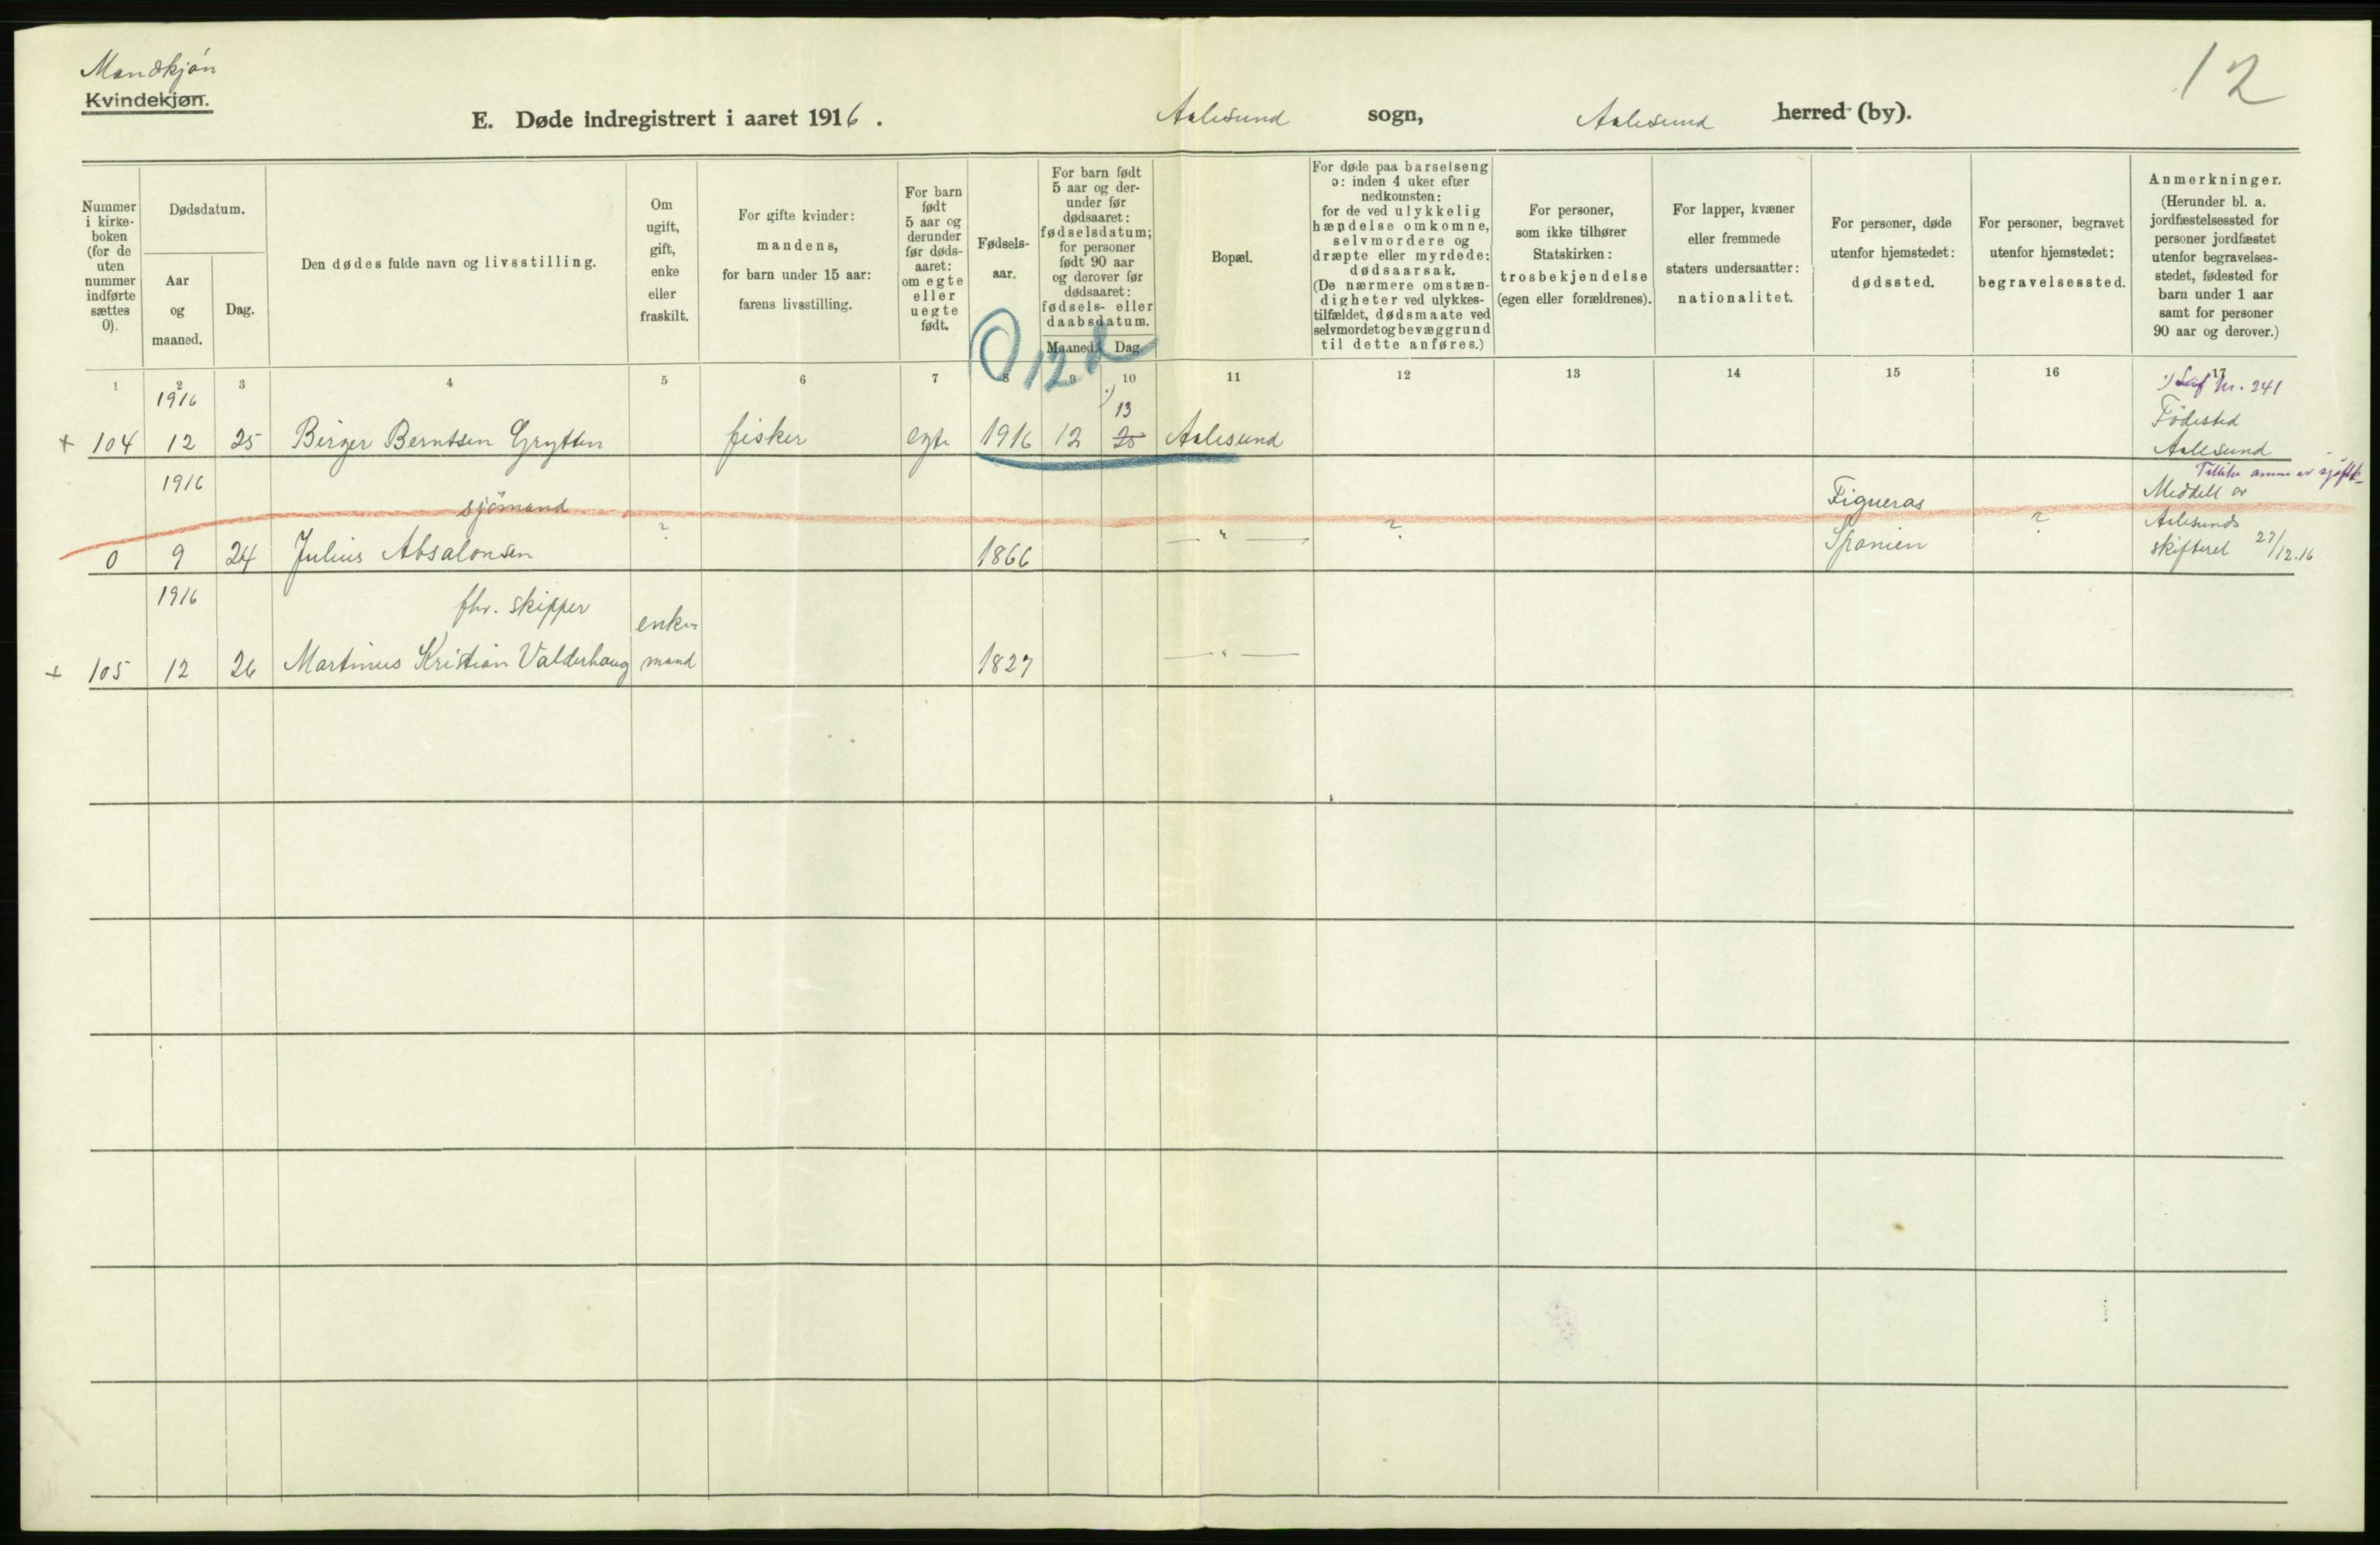 Mandkjön
Kvindekjøn.
12
E. Døde indregistrert i aaret 1916.
Aalesund sogn, Aalesund herred (by).
Nummer i kirke-boken (for de uten nummer indførte sættes 0).
Dødsdatum.
Aar og maaned.
Dag.
Den dødes fulde navn og livsstilling.
Om ugift, gift, enke eller fraskilt.
For gifte kvinder: mandens, for barn under 15 aar: farens livsstilling.
For barn født 5 aar og derunder før døds-aaret: om egte eller uegte født.
Fødsels-aar.
For barn født 5 aar og der-under før dødsaaret: fødselsdatum; for personer født 90 aar og derover før dødsaaret: fødsels- eller daabsdatum.
Maaned. Dag.
Bopæl.
For døde paa barselseng ɔ: inden 4 uker efter nedkomsten: for de ved ulykkelig hændelse omkomne, selvmordere og dræpte eller myrdede: dødsaarsak. (De nærmere omstæn-digheter ved ulykkes-tilfældet, dødsmaate ved selvmordet og bevæggrund til dette anføres.)
For personer, som ikke tilhører Statskirken: trosbekjendelse (egen eller forældrenes).
For lapper, kvæner eller fremmede staters undersaatter: nationalitet.
For personer, døde utenfor hjemstedet: dødssted.
For personer, begravet utenfor hjemstedet: begravelsessted.
Anmerkninger. (Herunder bl. a. jordfæstelsessted for personer jordfæstet utenfor begravelses-stedet, fødested for barn under 1 aar samt for personer 90 aar og derover.)
0 12 d
1 2 3 4 5 6 7 8 9 10 11 12 13 14 15 16 17
1916 13 nr. 241
Födested
+ 104 12 25 Birger Berntsen Grytten fisker egte 1916 12 25 Aalesund Aalesund
1916 sjömand ? ? Figueras ? Meddelt av
Aalesunds
0 9 24 Julius Absalonsen 1866 — " — Spanien skifteret 27/12.16
1916 fhv. skipper enke-
+ 105 12 26 Martinus Kristian Valderhaug mand 1827 — " —